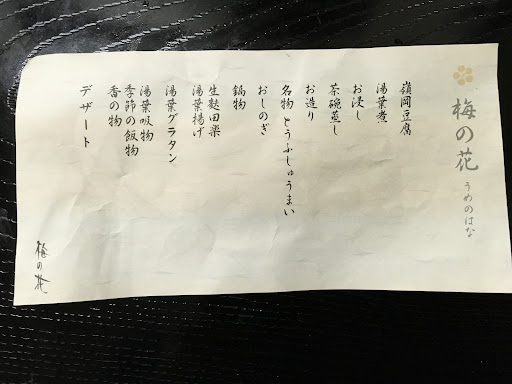 梅の花
うめのはな
嶺岡豆腐
湯葉煮
お浸し
茶碗蒸し
お造り
名物 とうふしゅうまい
おしのぎ
鍋物
生麩田楽
湯葉揚げ
湯葉グラタン
湯葉吸物
季節の飯物
香の物
デザート
梅の花